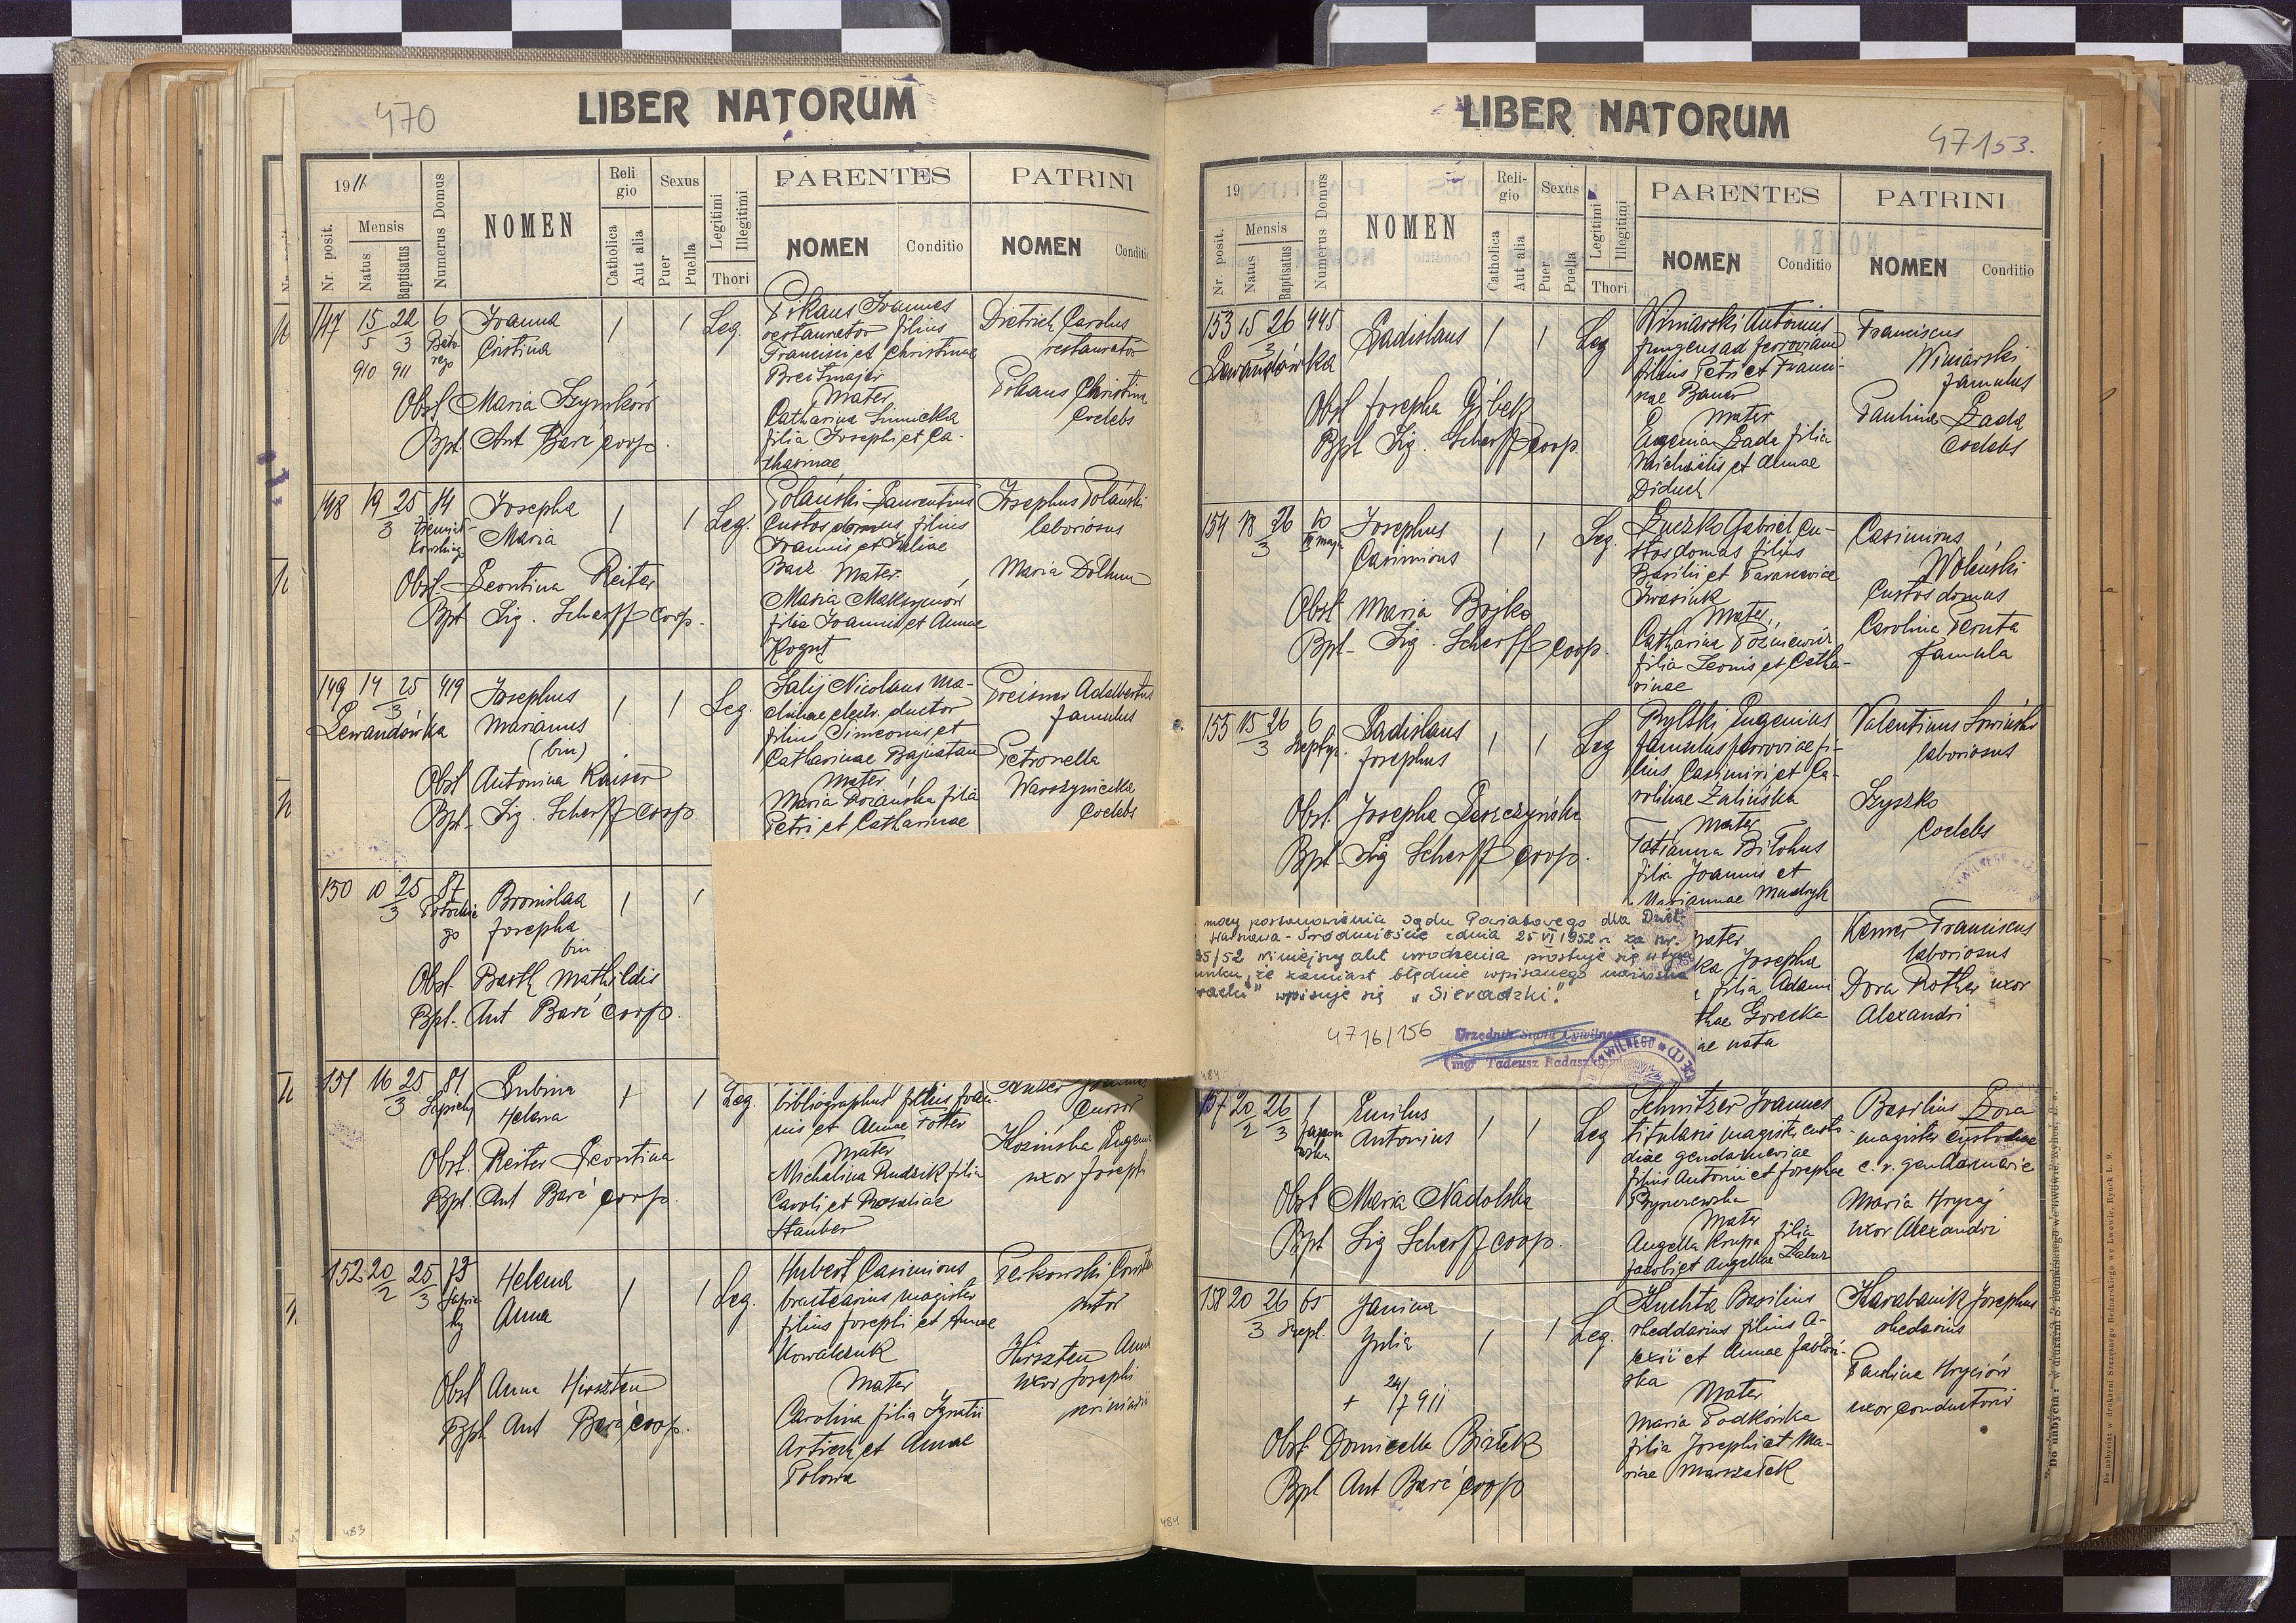 470
LIBER NATORUM
1911
Nr. posit.
Mensis
Natus
Baptisatus
Numerus Domus
NOMEN
Religio
Catholica
Aut alia
Sexus
Puer
Puella
Legitimi
Illegitimi
Thori
PARENTES
NOMEN Conditio
PATRINI
NOMEN Conditio
147 15/5 22/3 6 Joanna Cristina 1 1 Leg.
910 911
Pikaus Joannes
restaurator filius
Francisci et Christinae
Breitmajer
Mater
Catharina
filia Josephi et Ca-
tharinae
Dietrich Carolus
restaurator
Pikaus Christina
Coelebs
Obst Maria Szynków
Bpt. Ant Barć coop.
148 19 25/3 14 Josepha Maria 1 1 Leg.
Polański Laurentius
Custos domus filius
Joannis et Juliae
Bacz. Mater.
Maria Maksymów
filia Joannis et Annae
Kogut
Josephus Polański
laboriosus
Maria Dolhun
Obst. Leontina Reiter
Bpt Sig. Scharff coop.
149 14 25/3 419 Josephus Marianus (bin) 1 1 Leg.
Lewandówka
Salij Nicolaus ma-
chinae electr. ductor
filius Simeonis et
Catharinae
Mater
Maria filia
Petri et Catharinae
Preisner Adalbertus
famulus
Petronella
Coelebs
Obst Antonina Kaiser
Bpt. Sig. Scharff coop
150 10 25/3 87 Bronislaa Josepha bin 1 1
Obst. Barth Mathildis
Bpt. Ant Barć coop.
151 16 25/3 81 Lubina Helena 1 1 Leg.
Sapiehy
bibliographus filius Joan-
nis et Annae Totter
Mater
Michalina Rudzik filia
Caroli et Rosaliae
Stauber
Cursor
Kozińska Eugenia
uxor Josephi
Obst. Reiter Leontina
Bpt. Ant Barć coop.
152 20/2 25/3 73 Helena Anna 1 1 Leg.
Hubert Casimirus
bractearius magister
filius Josephi et Annae
Kowalczuk
Mater
Carolina filia Ignatii
et Annae
Polowa
Perkowski
sutor
Hirszten Anna
uxor Josephi
Obst Anna Hirszten
Bpt Ant Barć coop.
483
LIBER NATORUM
47153.
19
Nr. posit.
Mensis
Natus
Baptisatus
Numerus Domus
NOMEN
Religio
Catholica
Aut alia
Sexus
Puer
Puella
Legitimi
Illegitimi
Thori
PARENTES
NOMEN Conditio
PATRINI
NOMEN Conditio
153 15 26/3 445 Ladislaus 1 1 Leg
Lewandówka
Winiarski Antonius
fungens ad ferroviam
filius Petri et Franci-
scae Bauer
Mater
Eugenia Łada filia
Michaëlis et Annae
Diduch
Franciscus
Winiarski
famulus
Paulina Łada
Coelebs
Obst Josepha Gibek
Bpt Sig. Scharff coop.
154 18 26/3 10 Josephus Casimirus 1 1 Leg.
Łuczko Gabriel cu-
stos domus filius
Basilii et Parasceviae
Iwasiuk
Mater,
Catharina
filia Leonis et Catha-
rinae
Casimirus
Woleński
Custos domus
Carolina Peruta
famula
Obst Maria Bojko
Bpt- Sig. Scharff coop.
155 15/3 26 6 Ladislaus Josephus 1 1 Leg
Rylski Eugenius
famulus ferroviae fi-
lius Casimiri et Ca-
rolinae Zalińska
Mater
Tatianna Bilohus
filia Joannis et
Mariannae Mudryk
Valentinus Sowiński
laboriosus
Szyszko
Coelebs
Obst. Josepha Leszczyńska
Bpt. Sig Scharff coop.
mocy postanowienia Sądu Powiatowego dla Dziel-
Warszawa-Śródmieście z dnia 25 VI 1952 r. za nr.
35/52 niniejszy akt urodzenia prostuje się w tym
unku, że zamiast błędnie wpisanego nazwiska
racki" wpisuje się „Sieradzki".
4716/156
Urzędnik Stanu Cywilnego
mgr Tadeusz Radaszkiewicz
mater
ka Josepha
filia Adami
thae Gorecka
ae nata
Kerner Franciscus
laboriosus
Dora Rother uxor
Alexandri
157 20/2 26/3 1 Emilus Antonius 1 1 Leg
Schnitzer Joannes
titularis magister custo-
diae gendarmeriae
filius Antonii et Josephae
Mater
Angella Krupa filia
Jacobi et Angellae
Basilius Łoza
magister custodiae
c. r. gendarmerie
Maria Hrycaj
uxor Alexandri
Obst Maria Nadolska
Bpt Sig Scharff coop.
158 20/3 26 65 Janina Julia 1 1 Leg.
Szept.
Kuchta Basilius
rheddarius filius A-
lexii et Annae Jabłoń-
ska
Mater
Maria Podkówka
filia Josephi et Ma-
riae Marszałek
Karabanik Josephus
rhedarius
Paulina Hryciów
uxor conductoris
+ 24/7 911
Obst. Domicella Białek
Bpt Ant Barć coop
484
Do nabycia: w drukarni Szczęsnego Bednarskiego we Lwowie, Rynek L. 9.